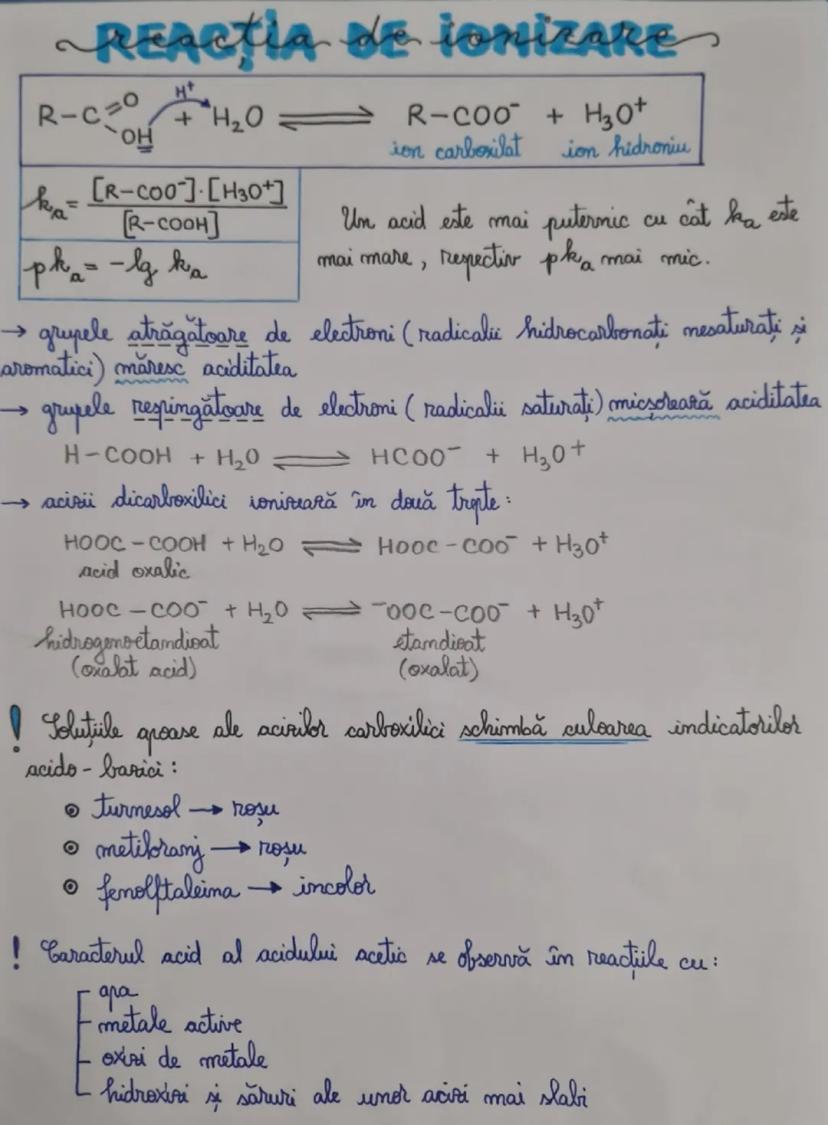 reacția de ionizare
REACȚIA DE IONIZARE
R-C=O OH + H₂O ⇌ R-COO⁻ + H₃O⁺
H⁺
ion carboxilat ion hidroniu
kₐ = [R-COO⁻]·[H₃O⁺] / [R-COOH]
pkₐ = -lg kₐ
Un acid este mai puternic cu cât kₐ este
mai mare, respectiv pkₐ mai mic.
→ grupele atrăgătoare de electroni (radicalii hidrocarbonați nesaturați și
aromatici) măresc aciditatea
→ grupele respingătoare de electroni (radicalii saturați) micșorează aciditatea
H-COOH + H₂O ⇌ HCOO⁻ + H₃O⁺
→ acizii dicarboxilici ionizează în două trepte:
HOOC-COOH + H₂O ⇌ HOOC-COO⁻ + H₃O⁺
acid oxalic
HOOC-COO⁻ + H₂O ⇌ ⁻OOC-COO⁻ + H₃O⁺
hidrogenoetandioat etandioat
(oxalat acid) (oxalat)
! Soluțiile apoase ale acizilor carboxilici schimbă culoarea indicatorilor
acido-bazici:
turnesol → roșu
metiloranj → roșu
fenolftaleina → incolor
! Caracterul acid al acidului acetic se observă în reacțiile cu:
apa
metale active
oxizi de metale
hidroxizi și săruri ale unor acizi mai slabi